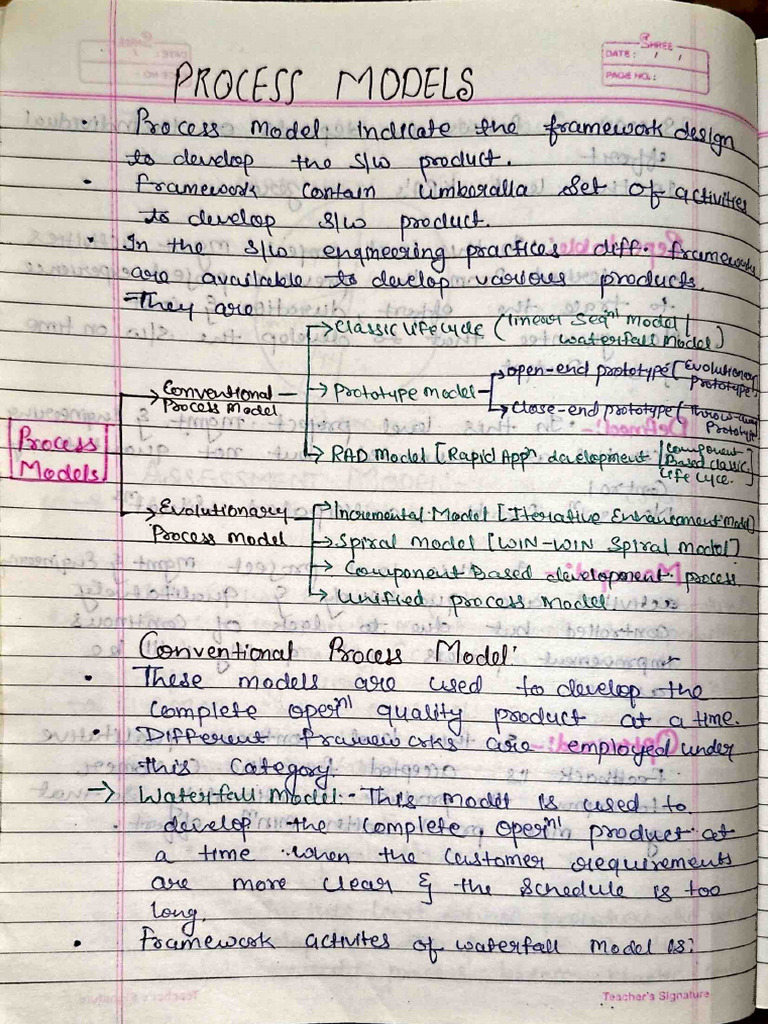 SHREE
DATE: / /
PAGE NO.:
PROCESS MODELS
• Process Model: Indicate the framework design
to develop the s/w product.
• framework contain umboralla set of activities
to develop s/w product.
• In the s/w engineering practices diff. frameworks
are available to develop various products.
They are
→ Classic Lifecycle (linear Seqnl Model |
waterfall Model)
Conventional Process Model
→ Prototype Model
→ open-end prototype [Evolutionary Prototype]
→ Close-end prototype [Throw-away Prototype]
→ RAD Model [Rapid Appn development / Component Based Classic Life Cycle.]
Process
Models
→ Evolutionary
Process Model
→ Incremental Model [Iterative Enhancement Model]
→ Spiral Model [WIN-WIN Spiral Model]
→ Component Based development process
→ Unified process Model
Conventional Process Model:
• These models are used to develop the
complete opernl quality product at a time.
• Different frameworks are employed under
this Category.
→ Waterfall Model - This model is used to
develop the complete opernl product at
a time when the customer requirements
are more clear & the schedule is too
long.
• framework activites of waterfall model is:
Teacher's Signature